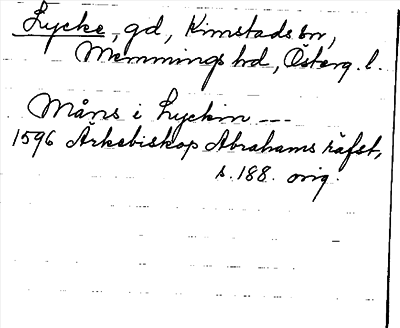 Lycke, gd, Kimstads sn,
Memmings hd, Österg. l.
Måns i Lyckin ---
1596 Ärkebiskop Abrahams räfst,
s. 188. orig.